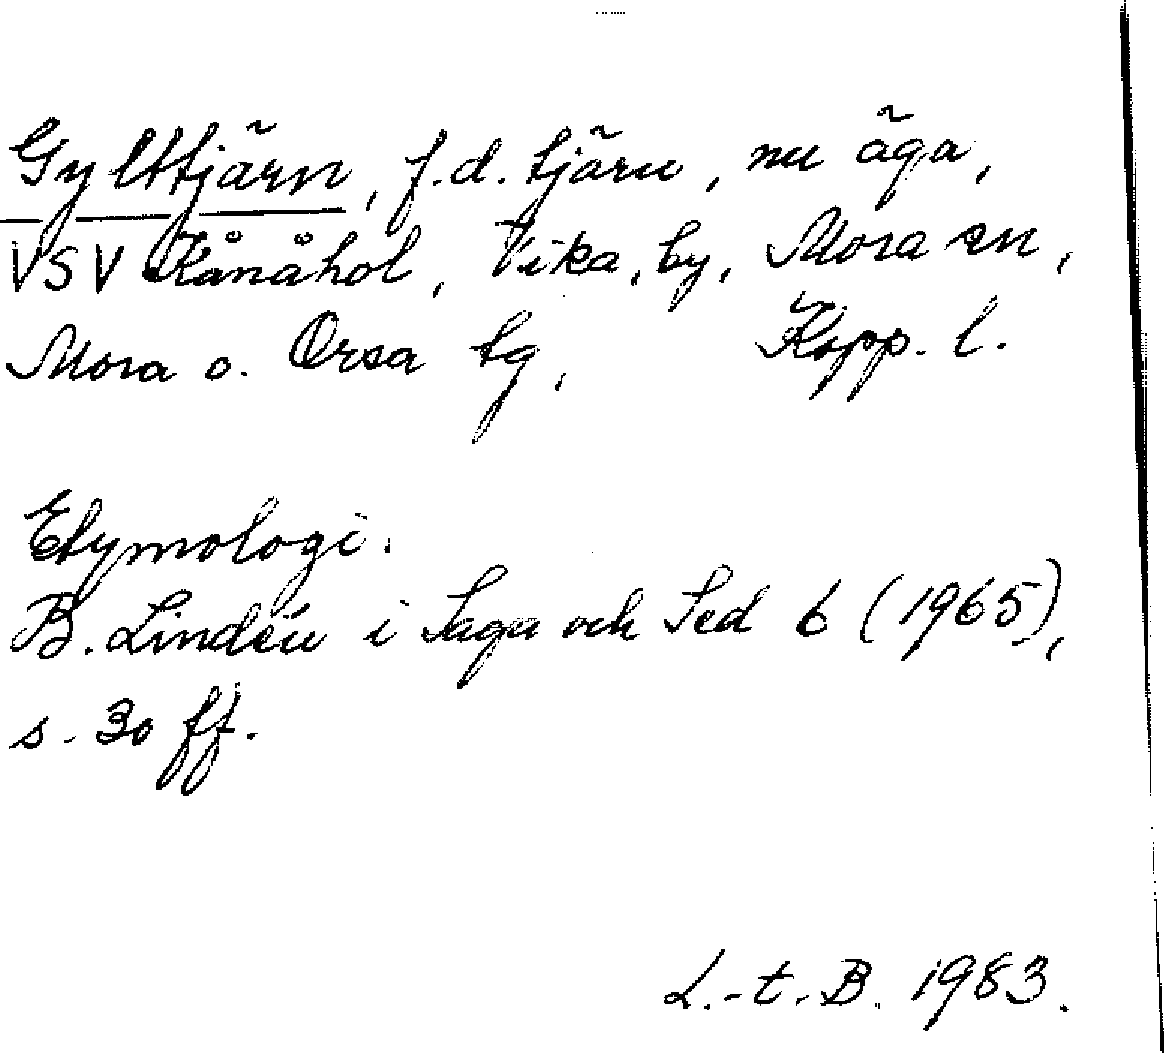 Gylttjärn, f.d. tjärn, nu äga,
VSV Kånåhol, Vika, by, Mora sn,
Mora o. Orsa tg, Kopp. l.
Etymologi.
B. Lindén i Saga och Sed 6 (1965),
s. 30 ff.
L.-t. B. 1983.